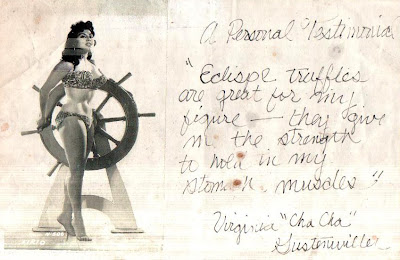 A Personal Testimonial
"Eclispe truffles
are great for my
figure — they give
me the strength
to hold in my
stomach muscles"
Virginia "Cha Cha"